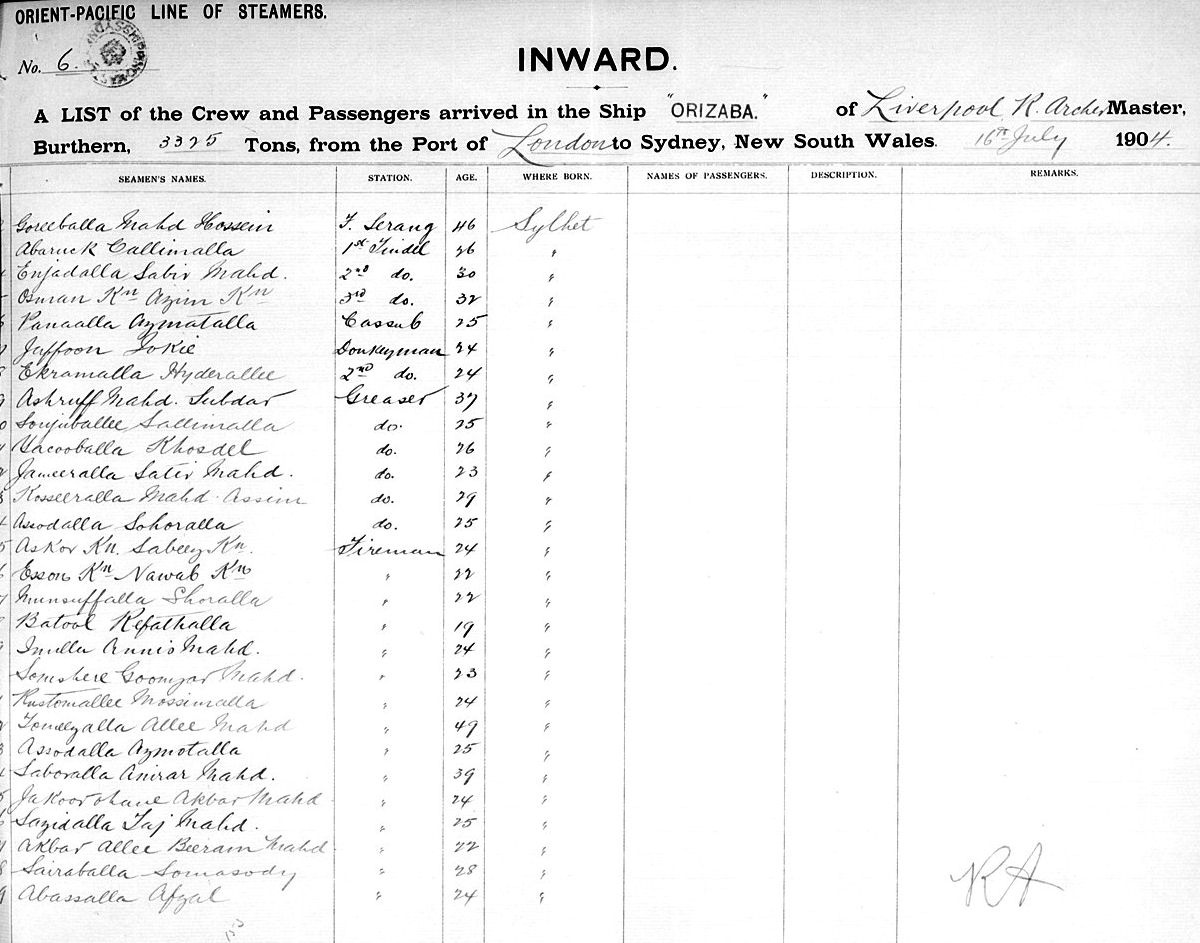 ORIENT-PACIFIC LINE OF STEAMERS.
No. 6.
INWARD.
A LIST of the Crew and Passengers arrived in the Ship "ORIZABA." of Liverpool, R. Archer Master,
Burthern, 3325 Tons, from the Port of London to Sydney, New South Wales. 16th July 1904.
SEAMEN'S NAMES. STATION. AGE. WHERE BORN. NAMES OF PASSENGERS. DESCRIPTION. REMARKS.
Goreeballa Mahd Hossein F. Serang 46 Sylhet
Abaruck Callimalla 1st Tindel 36 "
Enjadalla Sabir Mahd. 2nd do. 30 "
Osman Kn Azim Kn 3rd do. 32 "
Panaalla Azmatalla Cassub 25 "
Jaffoon Dokie Donkeyman 24 "
Ekramalla Hyderallee 2nd do. 24 "
Ashruff Mahd. Subdar Greaser 37 "
Sallimalla do. 25 "
Yacooballa Khosdel do. 26 "
Jameeralla Satir Mahd. do. 23 "
Kosseeralla Mahd Assim do. 29 "
Assodalla Sohoralla do. 25 "
Askor Kn. Sabeey Kn. Fireman 24 "
Esson Kn Nawab Kn " 22 "
Munsuffalla Shoralla " 22 "
Batool Kefathalla " 19 "
Annis Mahd. " 24 "
Somshere Goomjar Mahd. " 23 "
Rustomallee Mossimalla " 24 "
Allee Mahd " 49 "
Assodalla Azmotalla " 25 "
Saboralla Anirar Mahd. " 39 "
Akbar Mahd " 24 "
Sazidalla Taj Mahd. " 25 "
Akbar Allee Beeram Mahd " 22 "
Sairaballa Somasody " 28 "
Abassalla Afzal " 24 "
RA